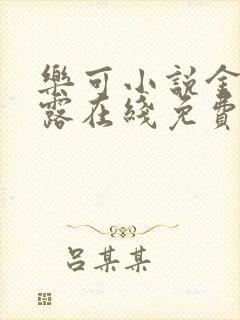 樂可小說金
露在綫免費
吕某某